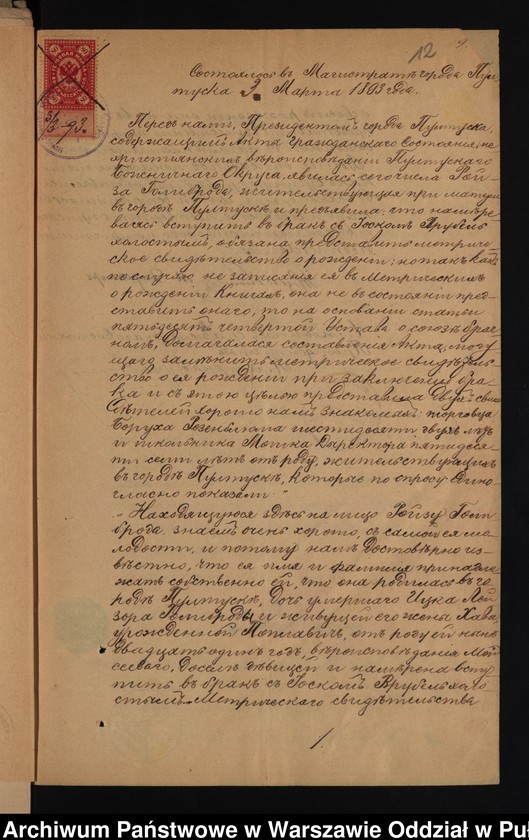 12
Состоялось въ Магистратѣ города Пул-
туска 3 Марта 1893 года.
31/3 93
Передъ нами, Президентомъ города Пултуска,
содержащимъ Акты Гражданскаго Состоянія не
христіанскихъ вѣроисповѣданій Пултускаго
Божничнаго Округа, явилась сего числа Рой-
за Гольдброда, жительствующая при матери
въ городѣ Пултускѣ и предъявила: что намѣре-
ваясь вступить въ бракъ съ Іоскомъ Врубель
холостымъ, обязана представить метриче-
ское свидѣтельство о рожденіи; но такъ какъ
по случаю не записанія ея въ метрическихъ
о рожденіи Книгахъ, она не въ состояніи пред-
ставить онаго, то на основаніи статьи
пятьдесятъ четвертой Устава о союзѣ брач-
номъ, домагалась составленія Акта, могу-
щаго замѣнить метрическое свидѣтель-
ство о ея рожденіи при заключеніи бра-
ка и съ этою цѣлью представила двухъ сви-
дѣтелей хорошо намъ знакомыхъ: торговца
Боруха Розенблюма шестидесяти двухъ лѣтъ
и школьника Мошка Директора пятидеся-
ти семи лѣтъ отъ роду, жительствующихъ
въ городѣ Пултускѣ, которые по спросу едино-
гласно показали:
"Находящуюся здѣсь на лицо Ройзу Гольд-
брода знаемъ очень хорошо, съ самой ея мо-
лодости, и потому намъ достовѣрно из-
вѣстно, что ея имя и фамилія принадле-
жатъ собственно ей, что она родилась въ го-
родѣ Пултускѣ, дочь умершаго Ицка Лей-
зора Гольдброды и живущей его жены Хавы
урожденной Поплавичъ, отъ роду ей нынѣ
двадцать одинъ годъ, вѣроисповѣданія Мои-
сеевого, доселѣ дѣвицей и намѣрена всту-
пить въ бракъ съ Іоскомъ Врубель холо-
стымъ. Метрическаго свидѣтельства
Archiwum Państwowe w Warszawie Oddział w Pu